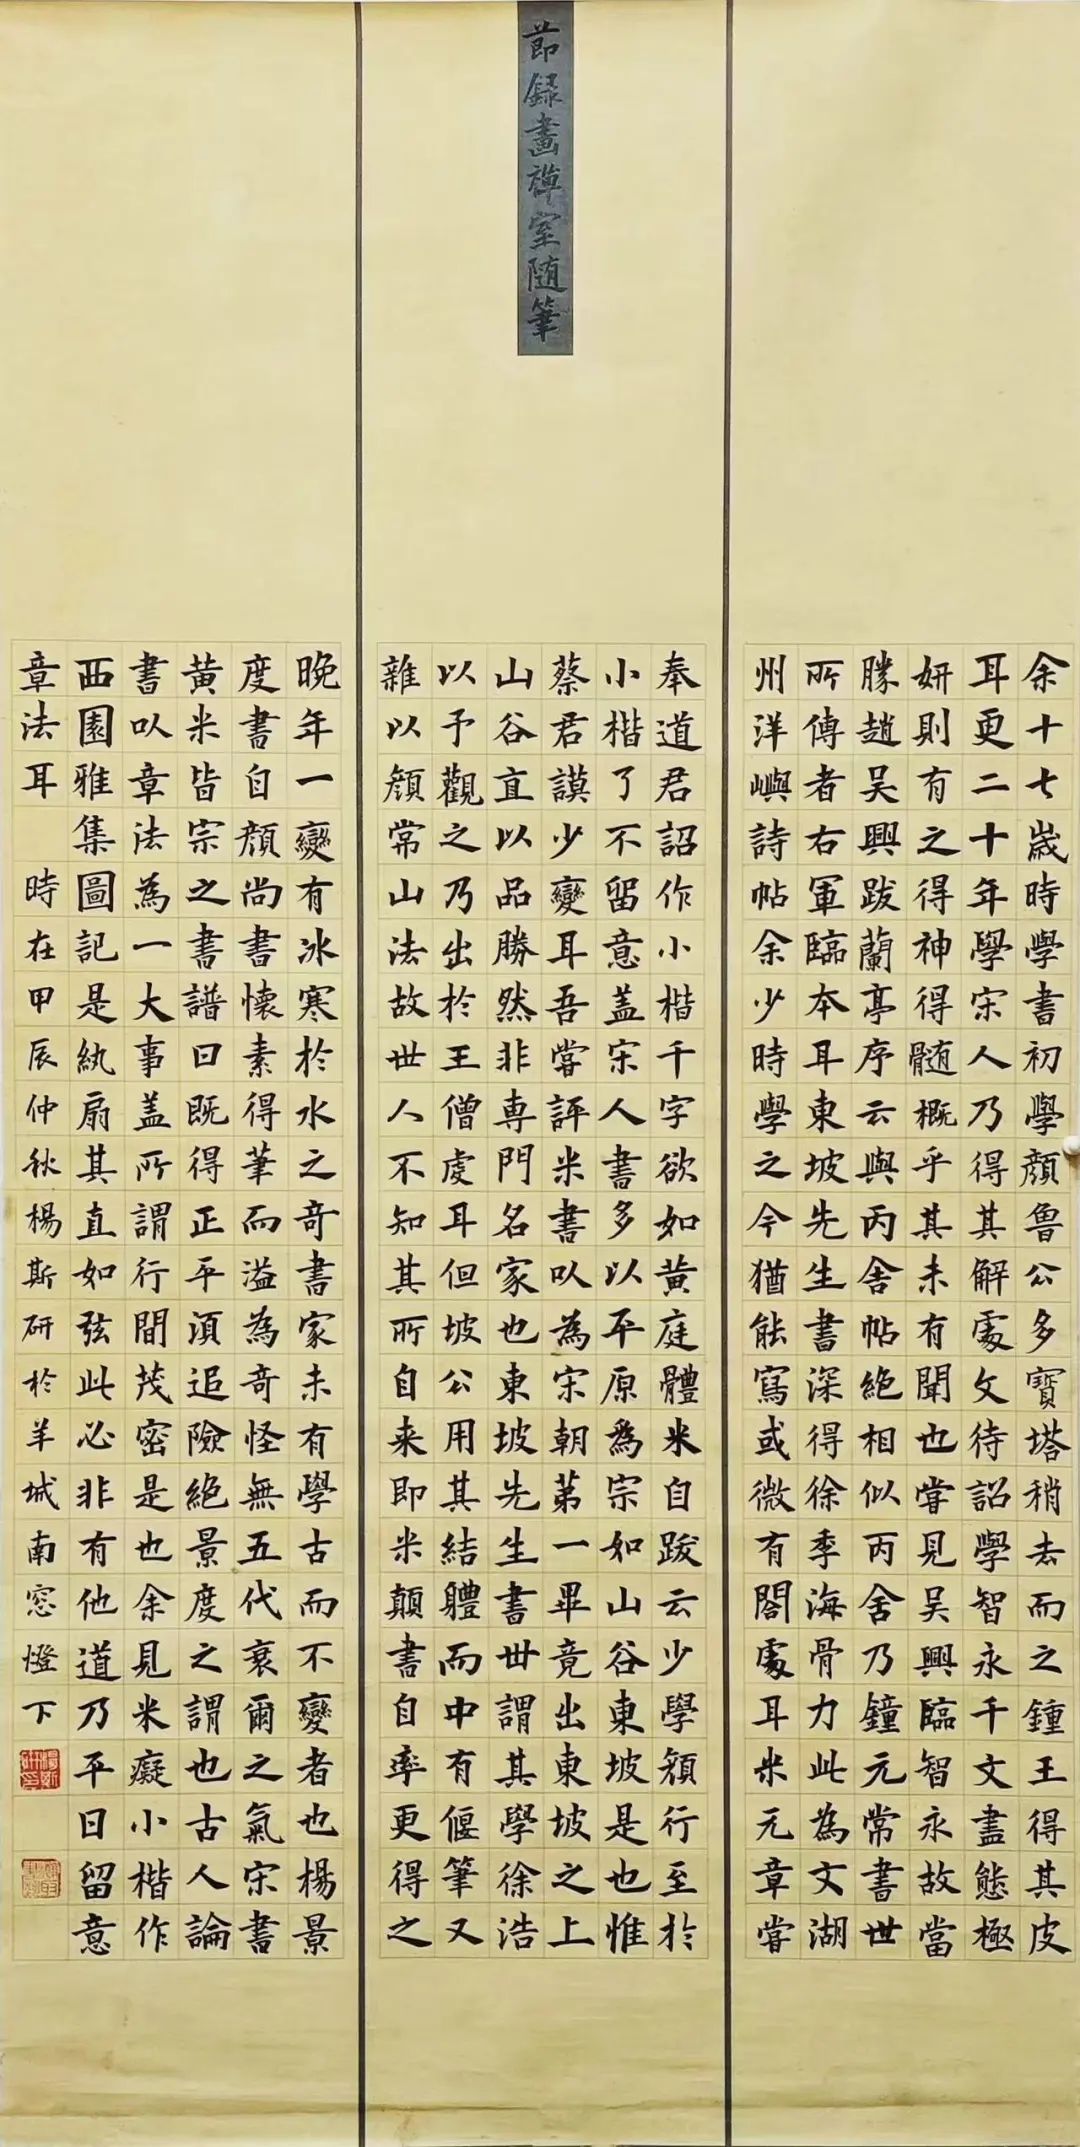 節録畫禅室随筆
余十七歲時學書初學顏魯公多寶塔稍去而之鍾王得其皮
耳更二十年學宋人乃得其解處文待詔學智永千文盡態極
妍則有之得神得髄概乎其未有聞也嘗見吴興臨智永故當
勝趙吴興跋蘭亭序云與丙舍帖絶相似丙舍乃鐘元常書世
所傳者右軍臨本耳東坡先生書深得徐季海骨力此為文湖
州洋嶼詩帖余少時學之今猶能寫或微有閣處耳米元章嘗
奉道君詔作小楷千字欲如黄庭體米自跋云少學顏行至於
小楷了不留意盖宋人書多以平原為宗如山谷東坡是也惟
蔡君謨少變耳吾嘗評米書以為宋朝第一畢竟出東坡之上
山谷直以品勝然非専門名家也東坡先生書世謂其學徐浩
以予觀之乃出於王僧虔耳但坡公用其結體而中有偃筆又
雜以顏常山法故世人不知其所自来即米顛書自率更得之
晚年一變有冰寒於水之奇書家未有學古而不變者也楊景
度書自顏尚書懷素得筆而溢為奇怪無五代衰爾之氣宋書
黄米皆宗之書譜曰既得正平須追險絶景度之謂也古人論
書以章法為一大事盖所謂行間茂密是也余見米癡小楷作
西園雅集圖記是紈扇其直如弦此必非有他道乃平日留意
章法耳 時在甲辰仲秋楊斯研於羊城南窓燈下